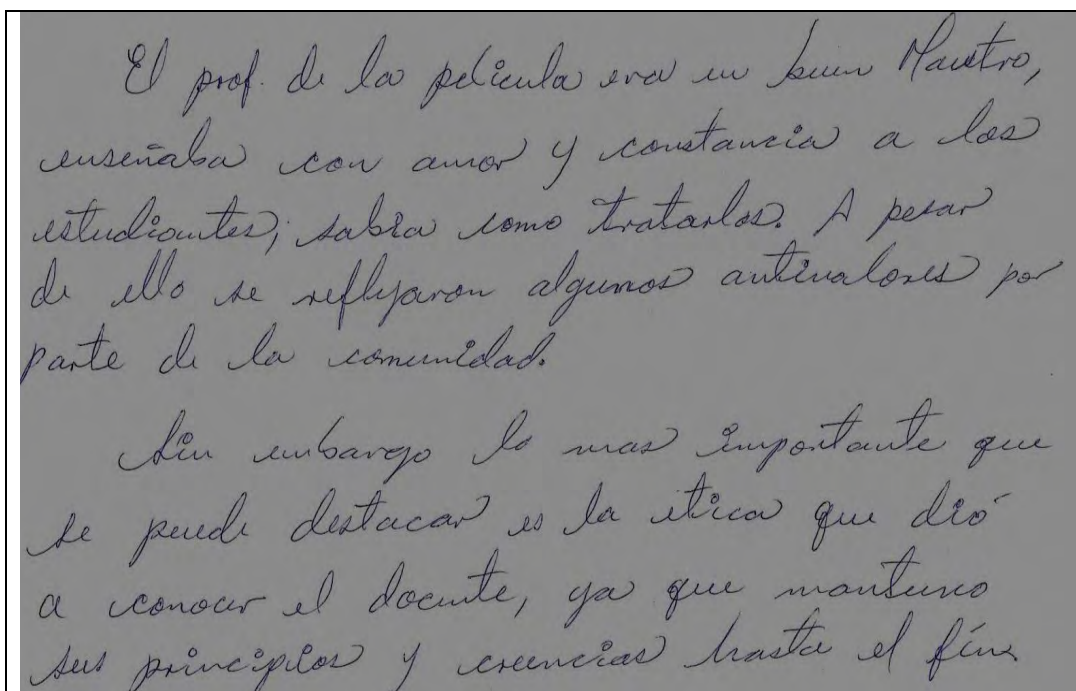 El prof. de la película era un buen Maestro,
enseñaba con amor y constancia a los
estudiantes; sabia como tratarlos. A pesar
de ello se reflejaron algunos antivalores por
parte de la comunidad.
Sin embargo lo mas importante que
se puede destacar es la etica que dió
a conocer el docente, ya que mantuvo
sus principios y creencias hasta el fín.